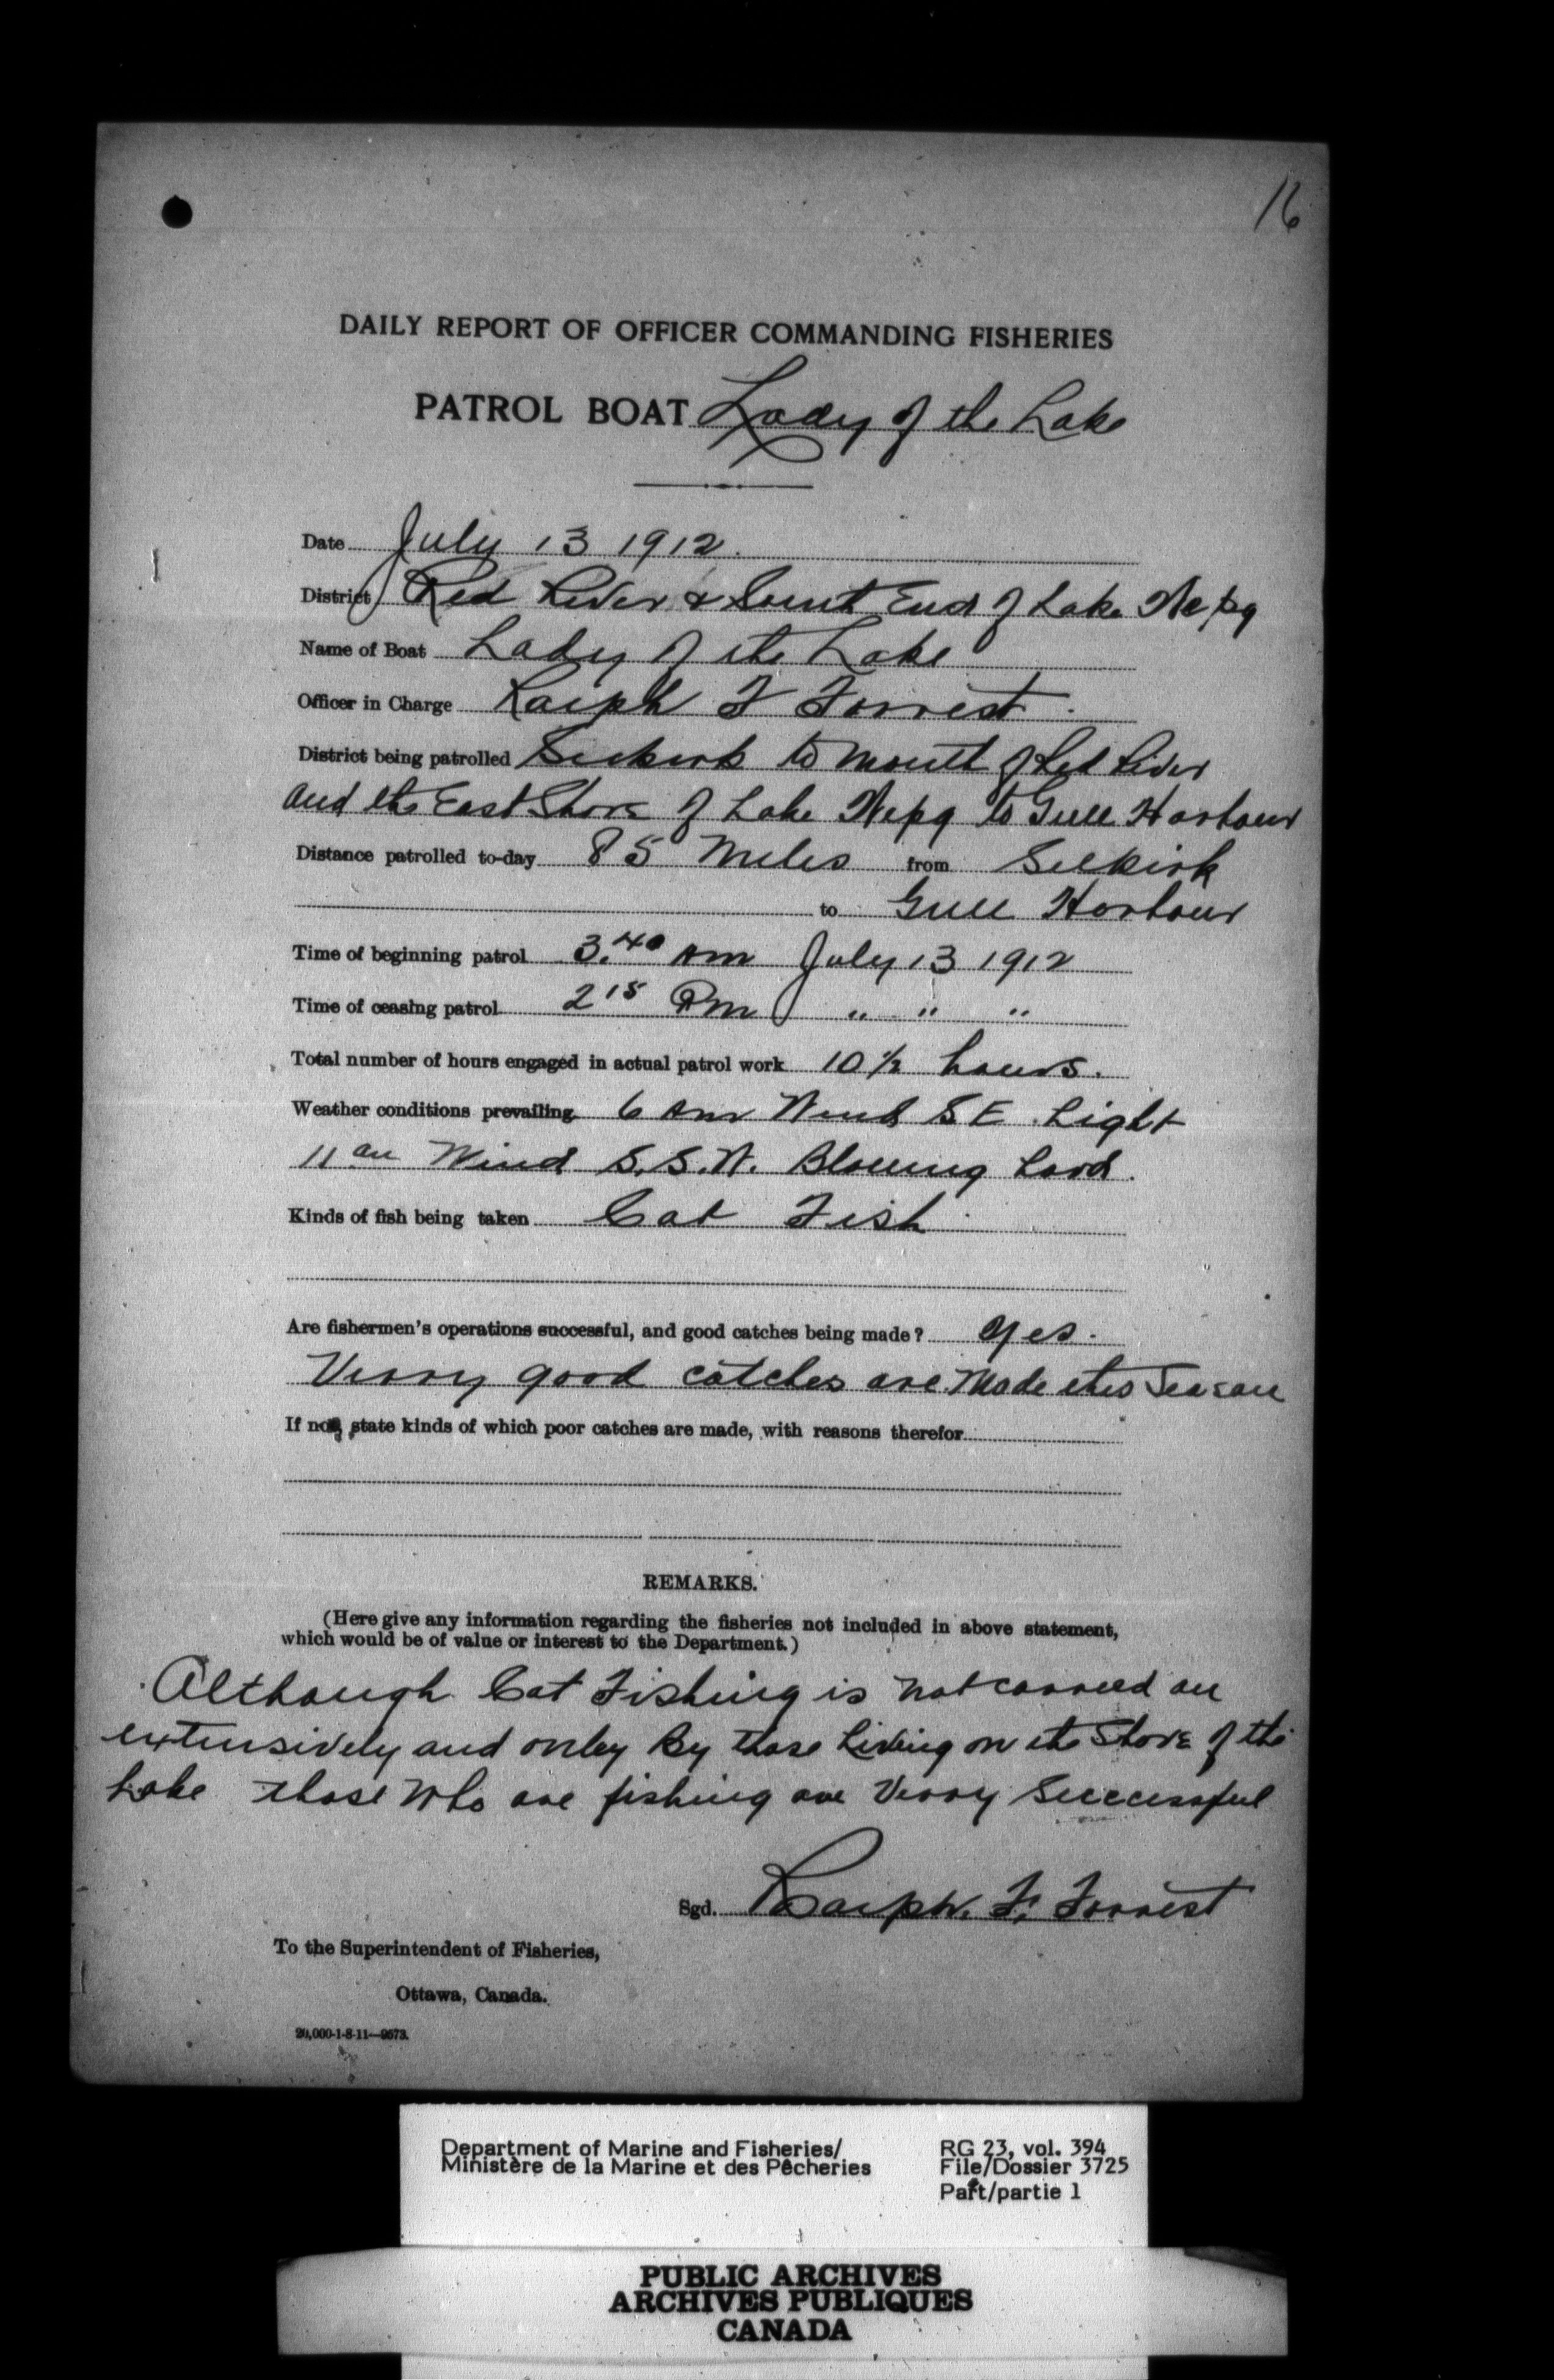 16
DAILY REPORT OF OFFICER COMMANDING FISHERIES
PATROL BOAT Lady of the Lake
Date July 13 1912.
District Red River & South End of Lake Wepg
Name of Boat Lady of the Lake
Officer in Charge Ralph F Forrest.
District being patrolled Selkirk to mouth of Red River
and the East Shore of Lake Wepg to Gull Harbour
Distance patrolled to-day 85 Miles from Selkirk
to Gull Harbour
Time of beginning patrol 3.40 Am July 13 1912
Time of ceasing patrol 2 15 Pm " " "
Total number of hours engaged in actual patrol work 10 1/2 hours.
Weather conditions prevailing 6 Am Wind S E Light
11 am Wind S.S.W. Blowing hard.
Kinds of fish being taken Cat Fish
Are fishermen's operations successful, and good catches being made? Yes.
Verry good catches are Made this Season
If not, state kinds of which poor catches are made, with reasons therefor
REMARKS.
(Here give any information regarding the fisheries not included in above statement,
which would be of value or interest to the Department.)
Although Cat Fishing is not carried on
extensively and only By those Living on the Shore of the
Lake those Who are fishing are Verry Successful
Sgd. Ralph. F. Forrest
To the Superintendent of Fisheries,
Ottawa, Canada.
20,000-1-8-11—9673.
Department of Marine and Fisheries/ RG 23, vol. 394
Ministère de la Marine et des Pêcheries File/Dossier 3725
Part/partie 1
PUBLIC ARCHIVES
ARCHIVES PUBLIQUES
CANADA